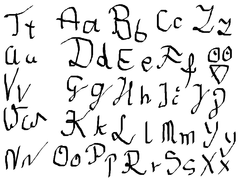 Tt Aa Bb Cc Zz
Uu Dd Ee Ff
Vv Gg Hh Ii Jj
Ww Kk Ll Mm Yy
Nn Oo Pp Rr Ss Xx